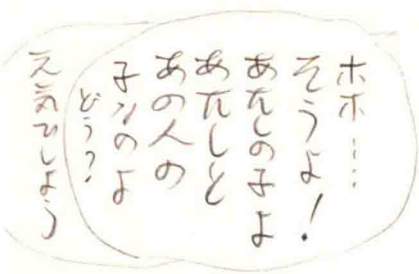 ホホ…
そうよ!
あたしの子よ
あたしと
あの人の
子ソのよ
どう?
元気でしよう